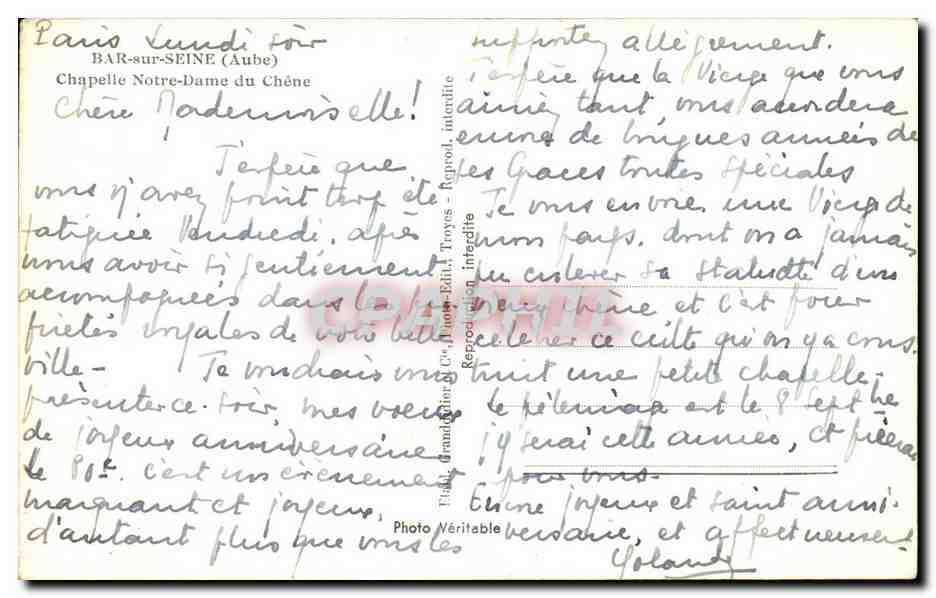 Paris Lundi soir
BAR-sur-SEINE (Aube)
Chapelle Notre-Dame du Chêne
Chère Mademoiselle!
J'espère que
vous n'avez point trop été
fatiguée Vendredi, après
nous avoir si gentiement
accompagnées dans les
de votre belle
ville -
Je voudrais vous
présenter ce soir mes voeux
de joyeux anniversaire
Le 80e. c'est un évènement
marquant et joyeux,
d'autant plus que vous les
Etabl. Grandidier et Cie, Photo-Edit., Troyes - Reprod. interdite
Reproduction interdite
Photo Véritable
CPAPHIL
supportez allègrement.
J'espère que la Vierge que vous
aimez tant, vous accordera
encore de longues années de
ses Graces toutes spéciales
Je vous envoie une Vierge de
mon pays. dont on a jamais
pu enlever sa statuette d'un
vieux chêne et c'est pour
célébrer ce culte qu'on y a cons-
truit une petite chapelle -
Le pélerinage est le 8 Septbre
j'y serai cette année, et prierai
pour vous -
Encore joyeux et saint anni-
versaire, et affectueusement
Yolande